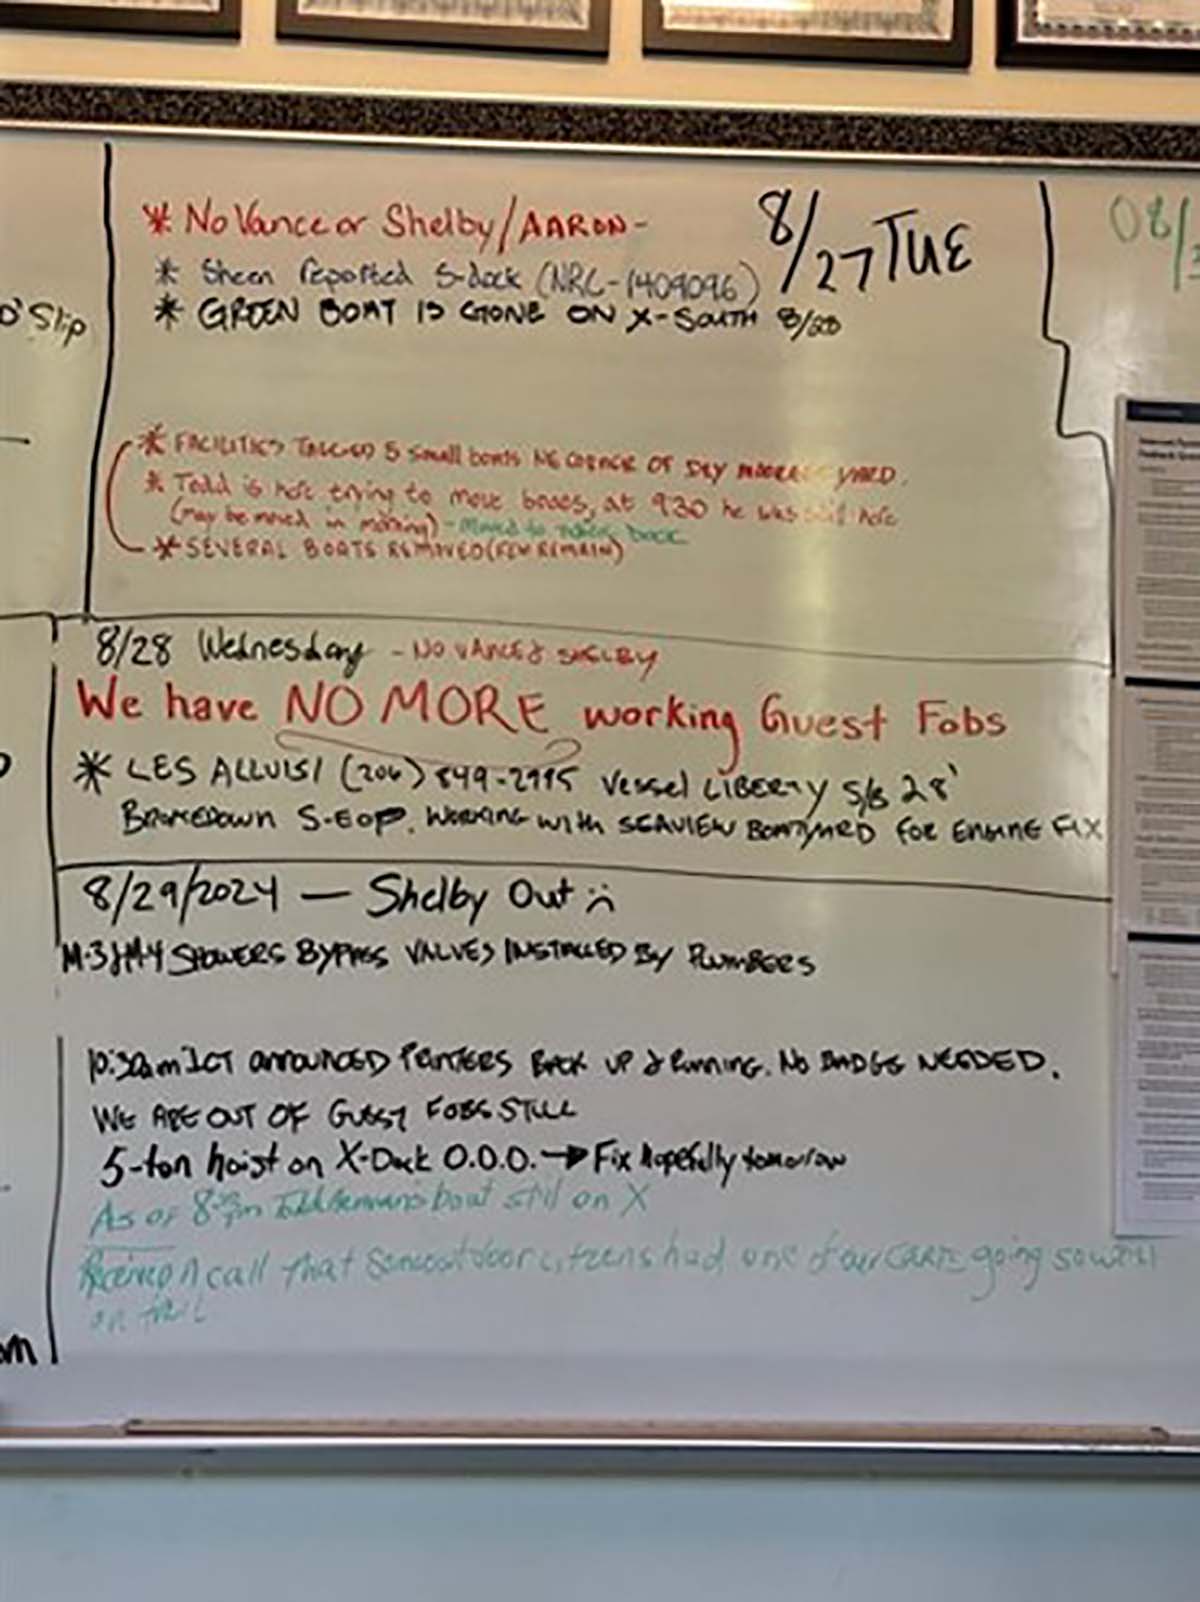 * No Vance or Shelby/AARON -
8/27 TUE
* Sheen reported S-dock (NRC-1409096)
* GREEN BOAT IS GONE ON X-SOUTH 8/28
08/
Slip
* FACILITIES TAGGED 5 small boats NE CORNER OF DRY MOORAGE YARD.
* Todd is here trying to move boats, at 930 he was still here
(may be moved in morning) - Moved to dock
* SEVERAL BOATS REMOVED (FEW REMAIN)
8/28 Wednesday - NO VANCE & SHELBY
We have NO MORE working Guest Fobs
* LES ALLUISI (206) 849-2995 Vessel LIBERTY S/B 28'
BROKEDOWN S-EOP. WORKING WITH SEAVIEW BOATYARD FOR ENGINE FIX
8/29/2024 — Shelby Out :(
M-3 & M-4 SHOWERS BYPASS VALVES INSTALLED BY PLUMBERS
10:30am ICT ANNOUNCED PRINTERS BACK UP & Running. No BADGE NEEDED.
WE ARE OUT OF GUEST FOBS STILL
5-ton hoist on X-Dock O.O.O. → Fix hopefully tomorrow
As of boat still on X
call that citizens had one of our carts going
on